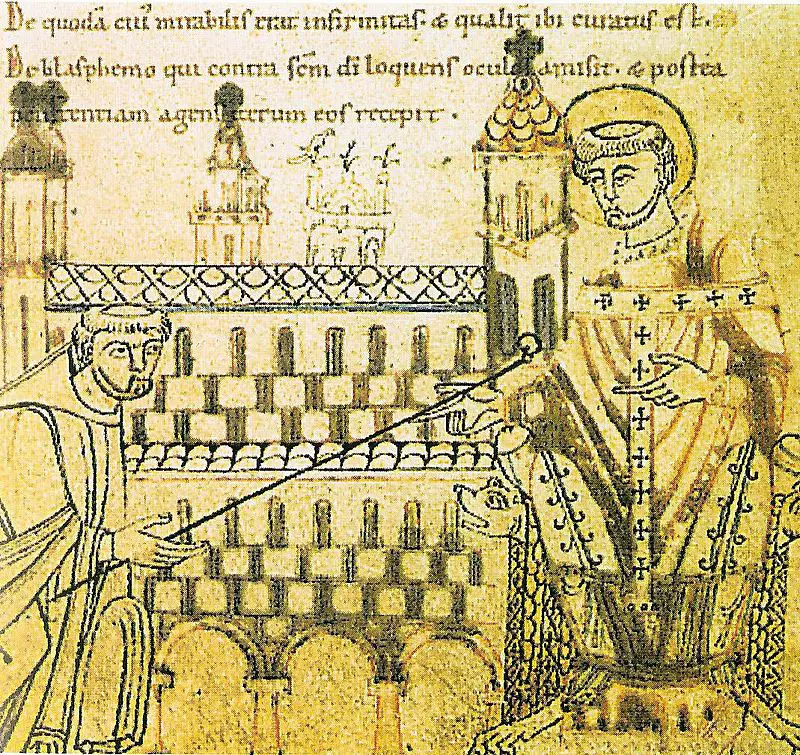 De quodā cui᾽ mirabilis erat infirmitas. & qualit᾽ ibi curatus est.
De blasphemo qui contra scm̄ dī loquens oculos amisit. & postea
penitentiam agens iterum eos recepit .